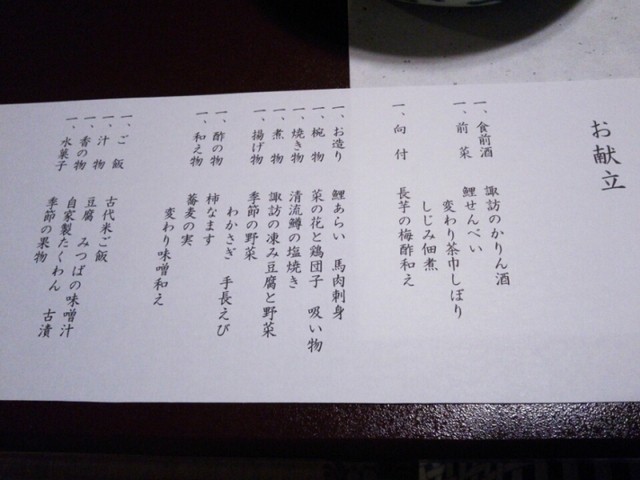 お献立
一、食前酒　諏訪のかりん酒
一、前菜　鯉せんべい
変わり茶巾しぼり
しじみ佃煮
一、向付　長芋の梅酢和え
一、お造り　鯉あらい　馬肉刺身
一、椀物　菜の花と鶏団子　吸い物
一、焼き物　清流鱒の塩焼き
一、煮物　諏訪の凍み豆腐と野菜
一、揚げ物　季節の野菜
わかさぎ　手長えび
一、酢の物　柿なます
一、和え物　蕎麦の実
変わり味噌和え
一、ご飯　古代米ご飯
一、汁物　豆腐　みつばの味噌汁
一、香の物　自家製たくわん　古漬
一、水菓子　季節の果物